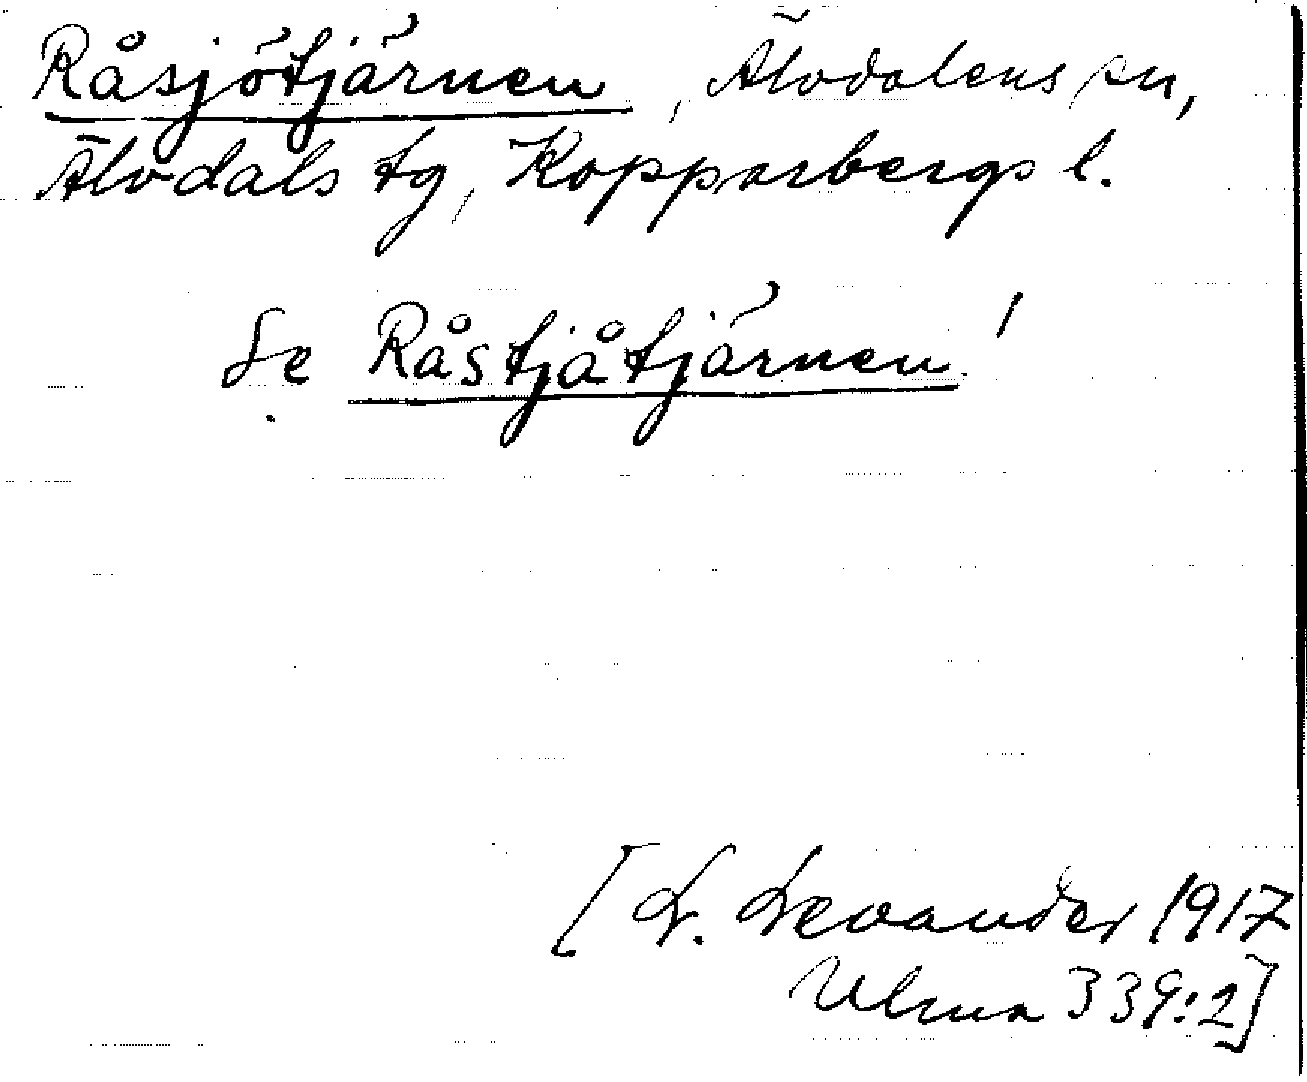 Råsjötjärnen, Älvdalens sn,
Älvdals tg, Kopparbergs l.
Se Råstjåtjärnen!
[L. Levander 1917
Ulma 339:2]